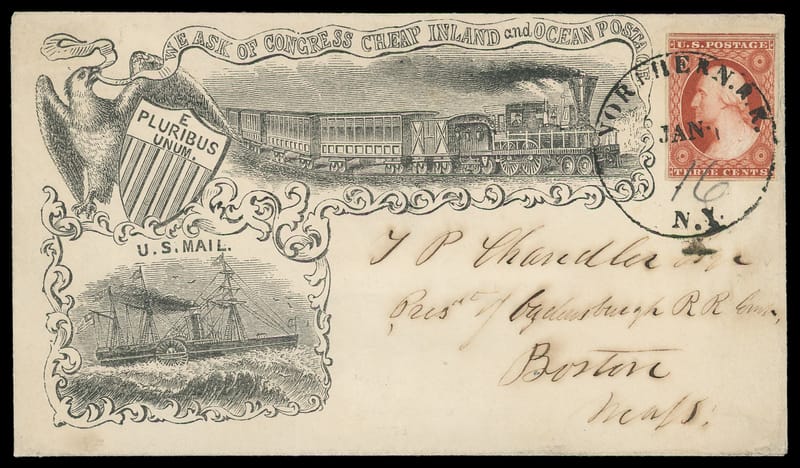 WE ASK OF CONGRESS CHEAP INLAND and OCEAN POSTA
E
PLURIBUS
UNUM.
U.S. POSTAGE
THREE CENTS
NORTHERN. R.R.
JAN.
16
N.Y.
U.S. MAIL.
T P Chandler Esqr
Prest of Ogdensburgh R R Com,
Boston
Mass.